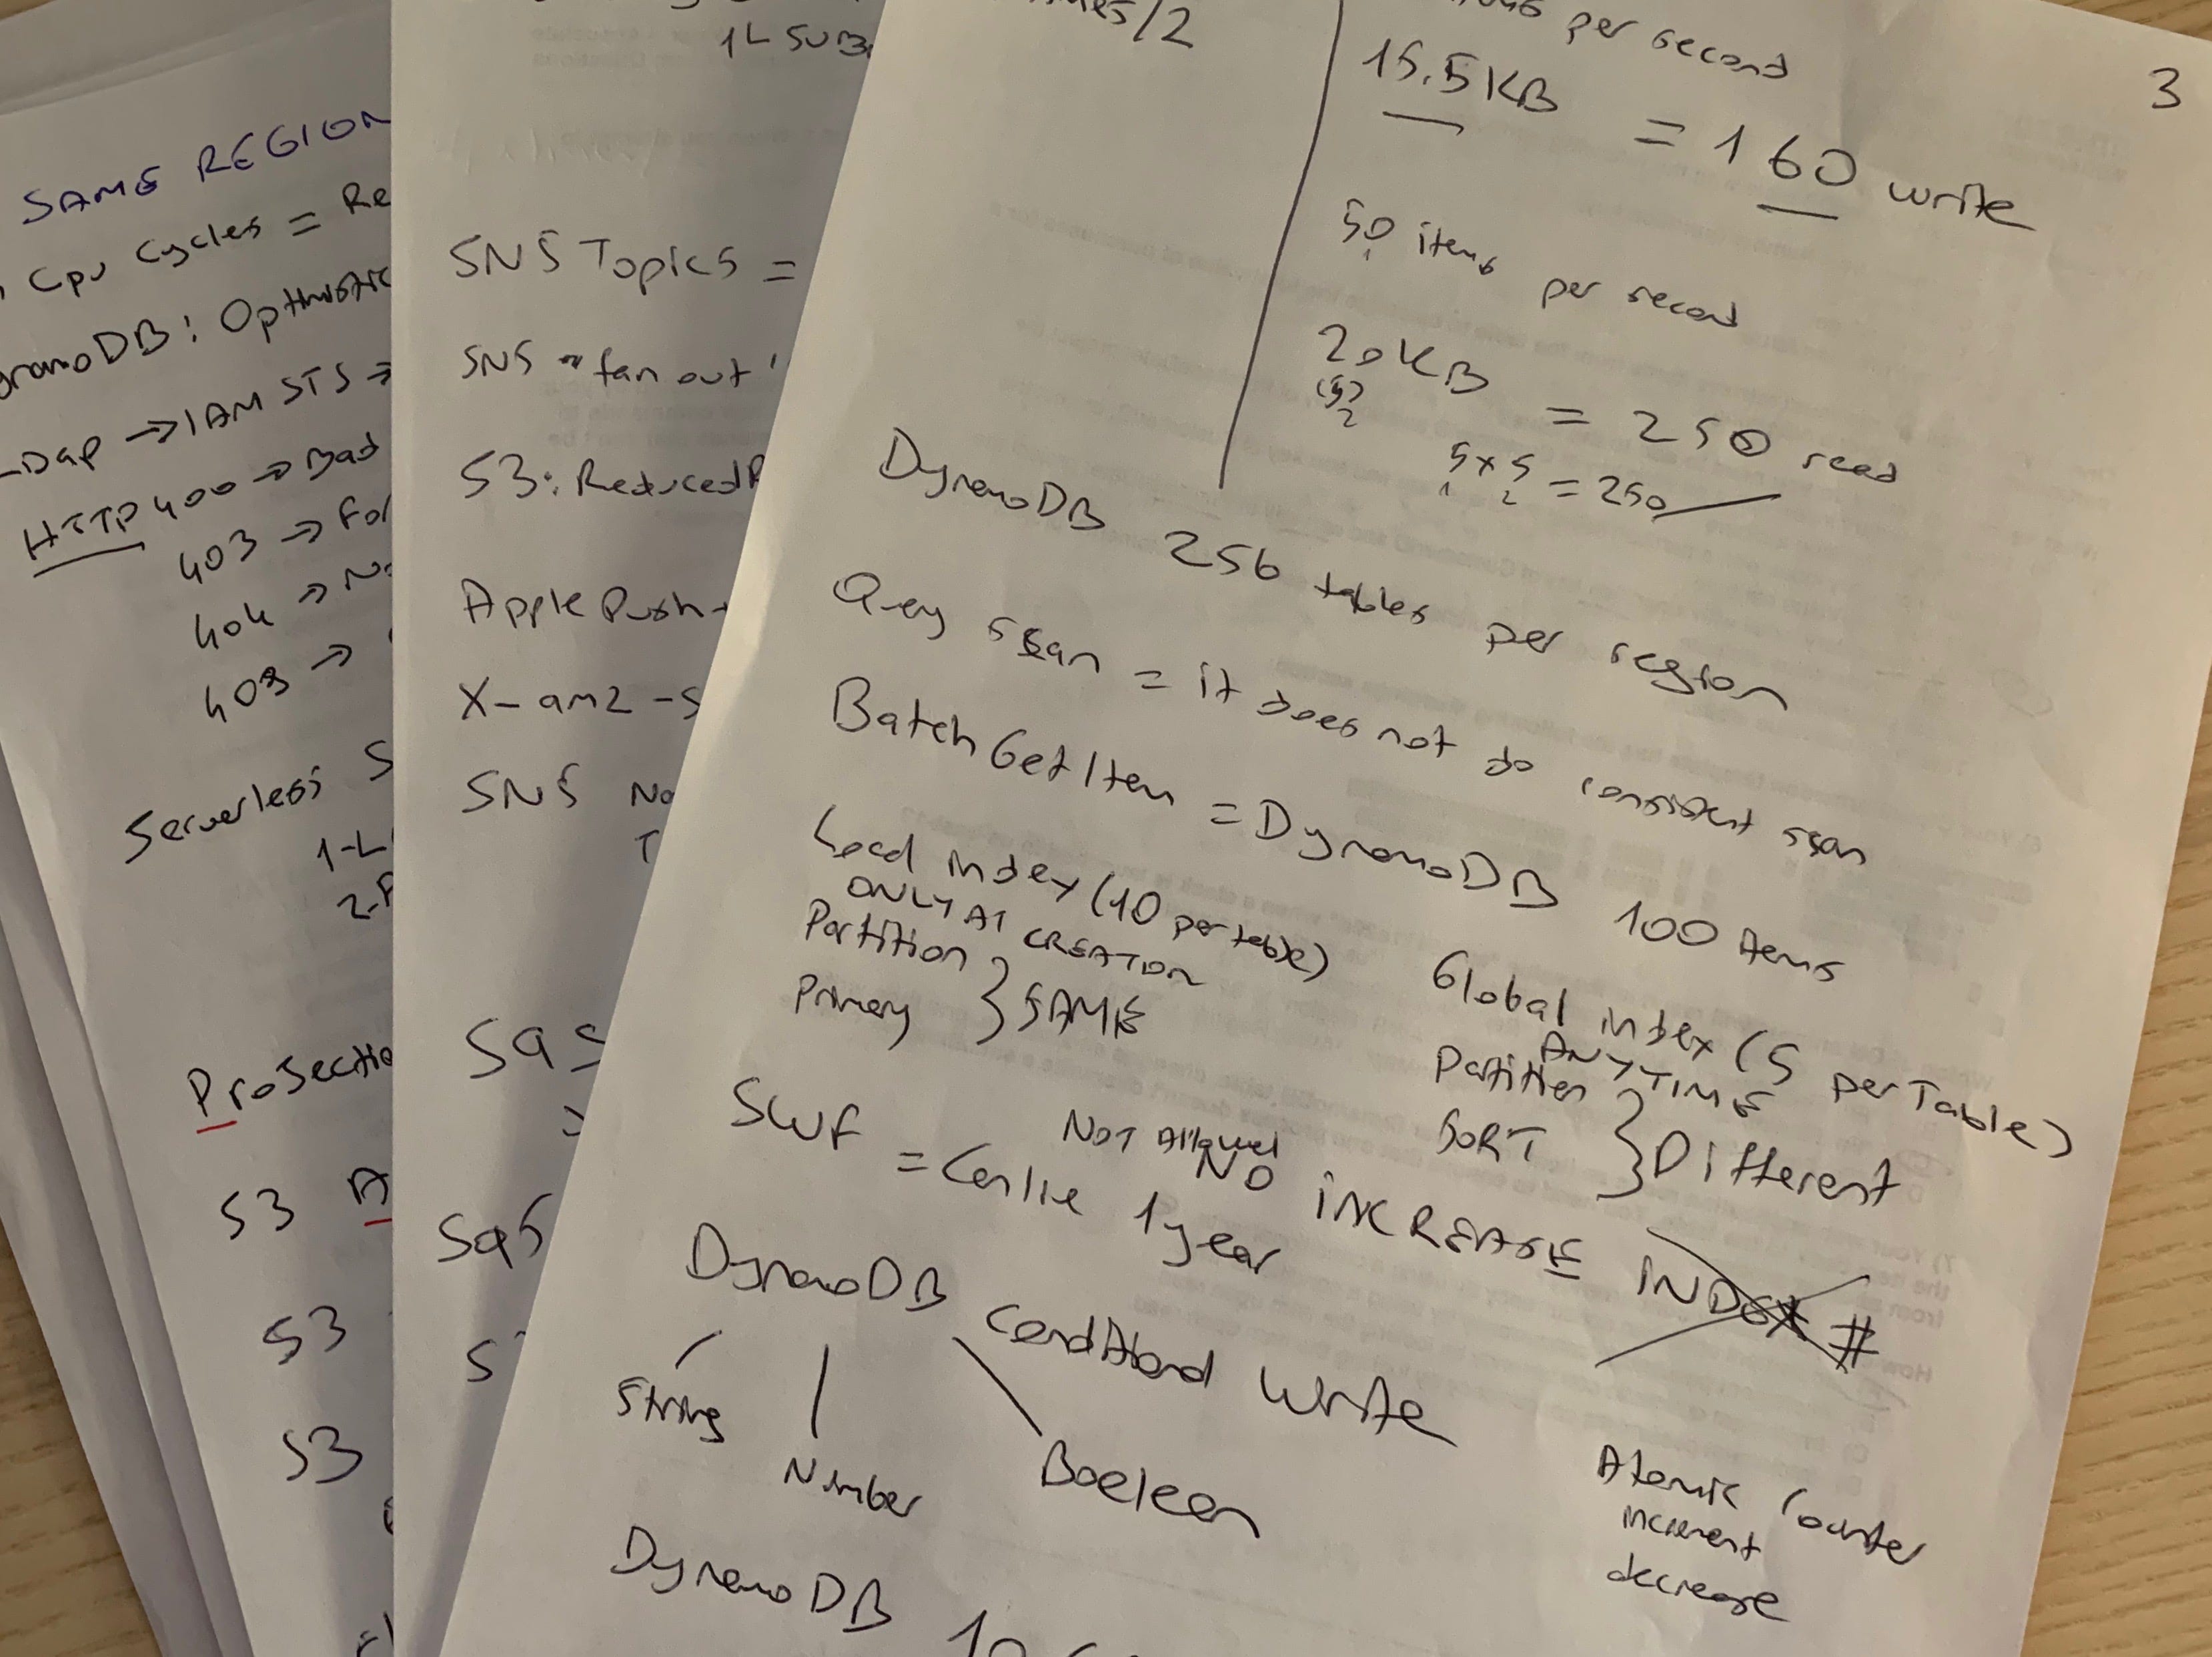 SAME REGION
Cpu Cycles = Re
DynamoDB: Optimistic
LDap → IAM STS →
HTTP 400 → Bad
403 → For
404 → No
403 →
Serverless S
1-L
2-P
ProSectio
S3 A
S3
S3
1 L SUB
SNS Topics =
SNS "fan out"
S3: ReducedR
Apple Push
X-amz-s
SNS No
T
SQS
SQS
S
3
per second
15.5 KB
= 160 write
50 items per second
20 KB
(5)
2
= 250 read
5 x 5 = 250
1 2
DynamoDB 256 tables per region
Query scan = it does not do consistent scan
BatchGetItem = DynamoDB 100 items
Local index (10 per table)
ONLY AT CREATION
Partition
Primary } SAME
Global index (5 per Table)
ANY TIME
Partition
SORT } Different
NOT Allowed
NO INCREASE INDEX #
SWF = 1 year
DynamoDB Conditional Write
String
Number
Boolean
Atomic Counter
increment
decrease
DynamoDB